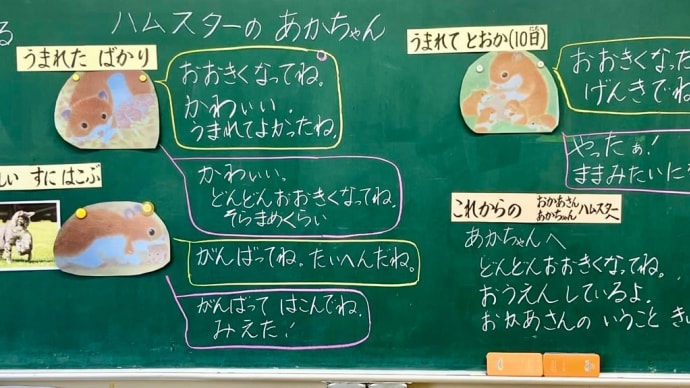 る
ハムスターの あかちゃん
うまれた ばかり
おおきくなってね。
かわいい。
うまれてよかったね。
かわいい。
どんどんおおきくなってね。
そらまめくらい
しい すにはこぶ
がんばってね。たいへんだね。
がんばって はこんでね。
みえた!
うまれて とおか(10日)
にち
おおきくなった
げんきでね
やったぁ!
ままみたいに
これからの おかあさん あかちゃん ハムスターへ
あかちゃんへ
どんどんおおきくなってね。
おうえんしているよ。
おかあさんの いうこと き